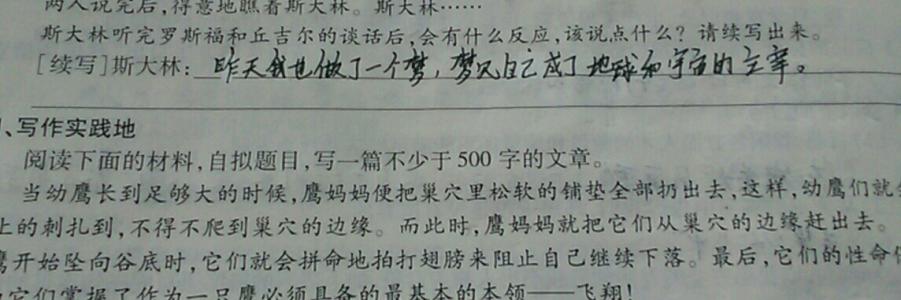 两人说完后,得意地瞧着斯大林。斯大林……
斯大林听完罗斯福和丘吉尔的谈话后,会有什么反应,该说点什么?请续写出来。
[续写]斯大林:昨天我也做了一个梦,梦见自己成了地球和宇宙的主宰。
、写作实践地
阅读下面的材料,自拟题目,写一篇不少于500字的文章。
当幼鹰长到足够大的时候,鹰妈妈便把巢穴里松软的铺垫全部扔出去,这样,幼鹰们就会
上的刺扎到,不得不爬到巢穴的边缘。而此时,鹰妈妈就把它们从巢穴的边缘赶出去。
鹰开始坠向谷底时,它们就会拼命地拍打翅膀来阻止自己继续下落。最后,它们的性命
为它们掌握了作为一只鹰必须具备的最基本的本领——飞翔!